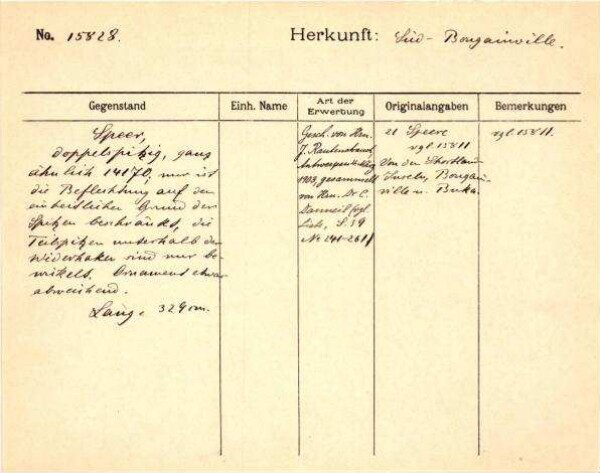 No. 15828.
Herkunft: Süd-Bougainville.
Gegenstand
Einh. Name
Art der Erwerbung
Originalangaben
Bemerkungen
Speer,
doppelspitzig, ganz
ähnlich 14170; nur ist
die Beflechtung auf den
einheitlichen Grund der
Spitzen beschränkt, die
Teilspitzen unterhalb der
Widerhaken sind nur be-
wickelt. Ornament etwas
abweichend.
Lang. 329 cm.
Gesch. von Hrn.
J. Rautenstrauch
Antwerpen
1903, gesammelt
von Hrn. Dr. C.
Danneil (vgl.
Liste, S. 19
No 241-261)
21 Speere
vgl. 15811
Von den Shortland
Inseln, Bougain-
ville u. Buka.
vgl. 15811.